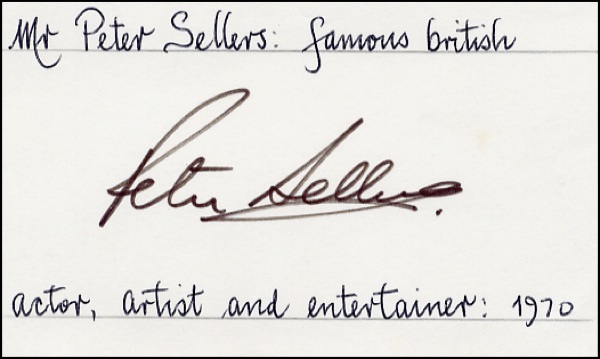 Mr Peter Sellers: famous british
Peter Sellers.
actor, artist and entertainer: 1970